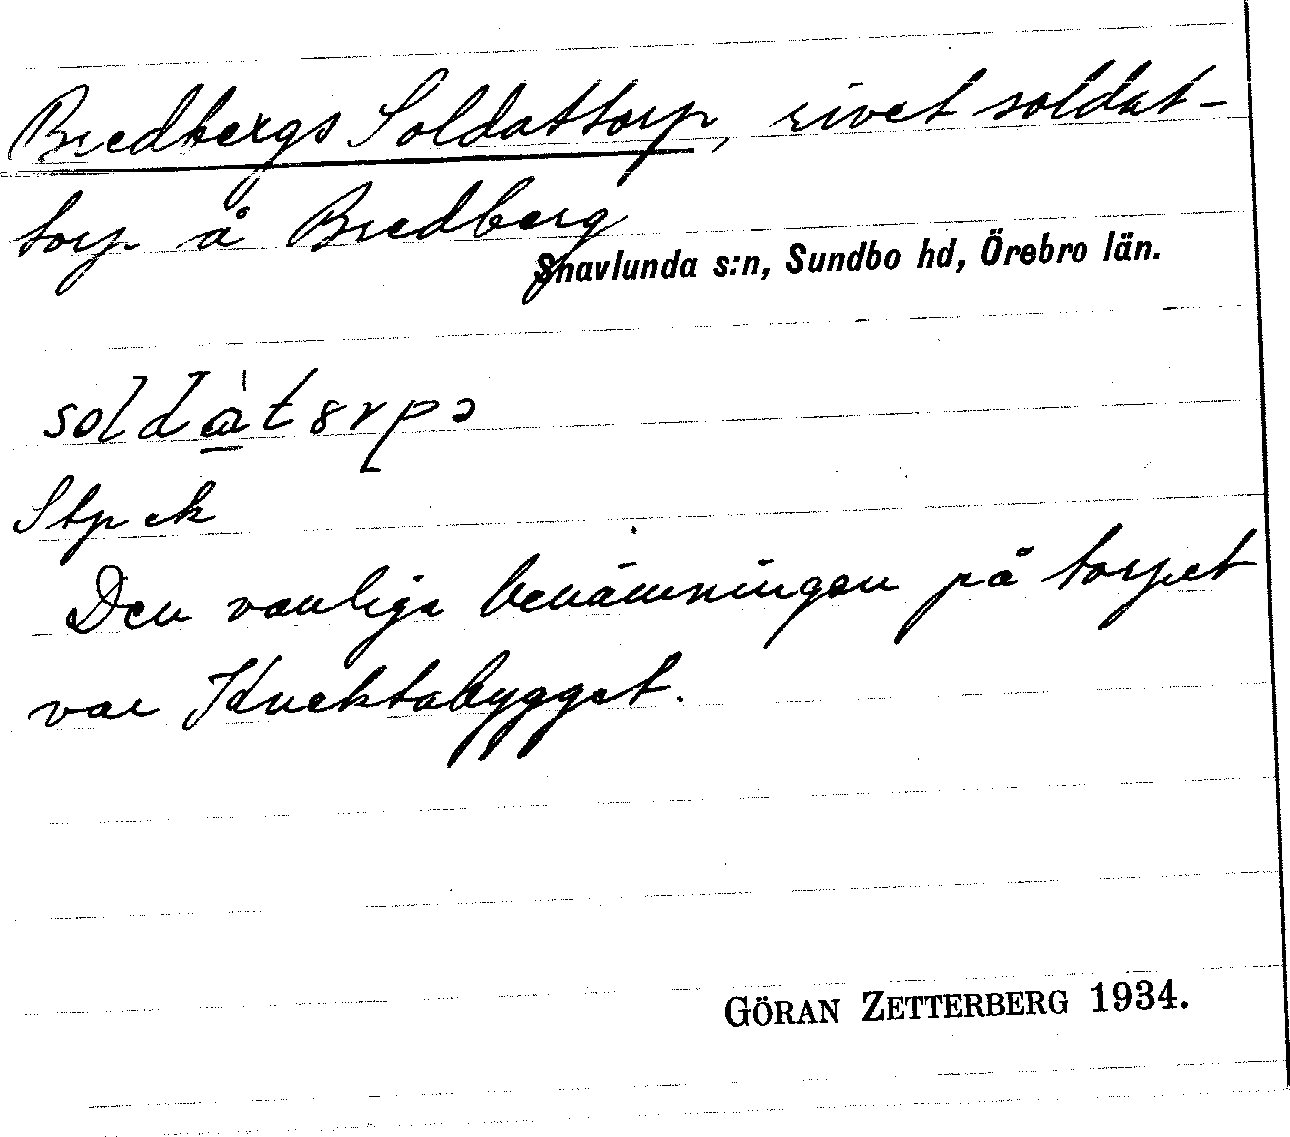 Bredbergs Soldattorp, rivet soldat-
torp å Bredberg
Snavlunda s:n, Sundbo hd, Örebro län.
soldàtɤrpə
Stp ek
Den vanliga benämningen på torpet
var Knektabygget.
GÖRAN ZETTERBERG 1934.